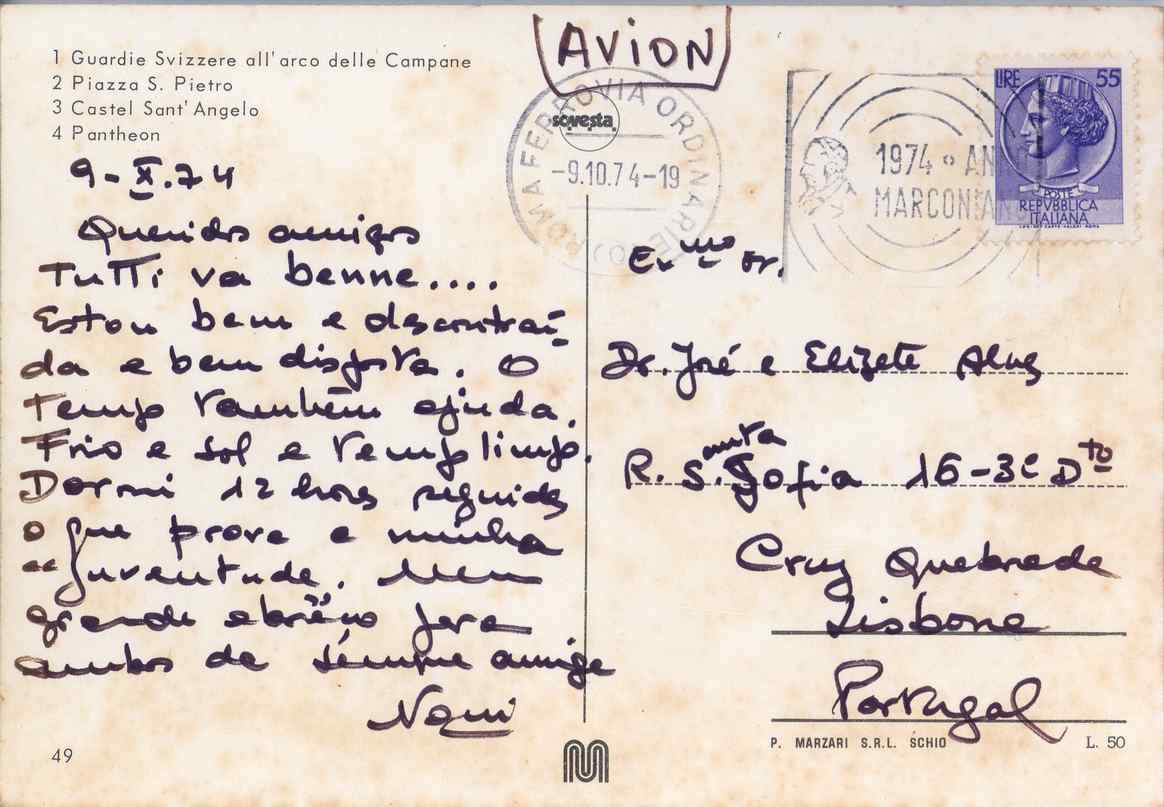 1 Guardie Svizzere all'arco delle Campane
2 Piazza S. Pietro
3 Castel Sant'Angelo
4 Pantheon
AVION
sovesta
ROMA FERROVIA ORDINARIE
-9.10.74-19
1974 AN
MARCONIAN
LIRE 55
POSTE
REPVBBLICA
ITALIANA
9-X.74
Queridos amigos
Tutti va benne....
Estou bem e descontraí-
da e bem disposta. O
Tempo também ajuda.
Frio e sol e tempo limpo.
Dormi 12 horas seguidas
o que prova a minha
"juventude". Um
grande abraço para
ambos da sempre amiga
Nani
Ex.mo Sr.
Dr. José e Elizete Alves
R. Santa Sofia 16-3º Dto
Cruz Quebrada
Lisboa
Portugal
49
P. MARZARI S.R.L. SCHIO
L. 50